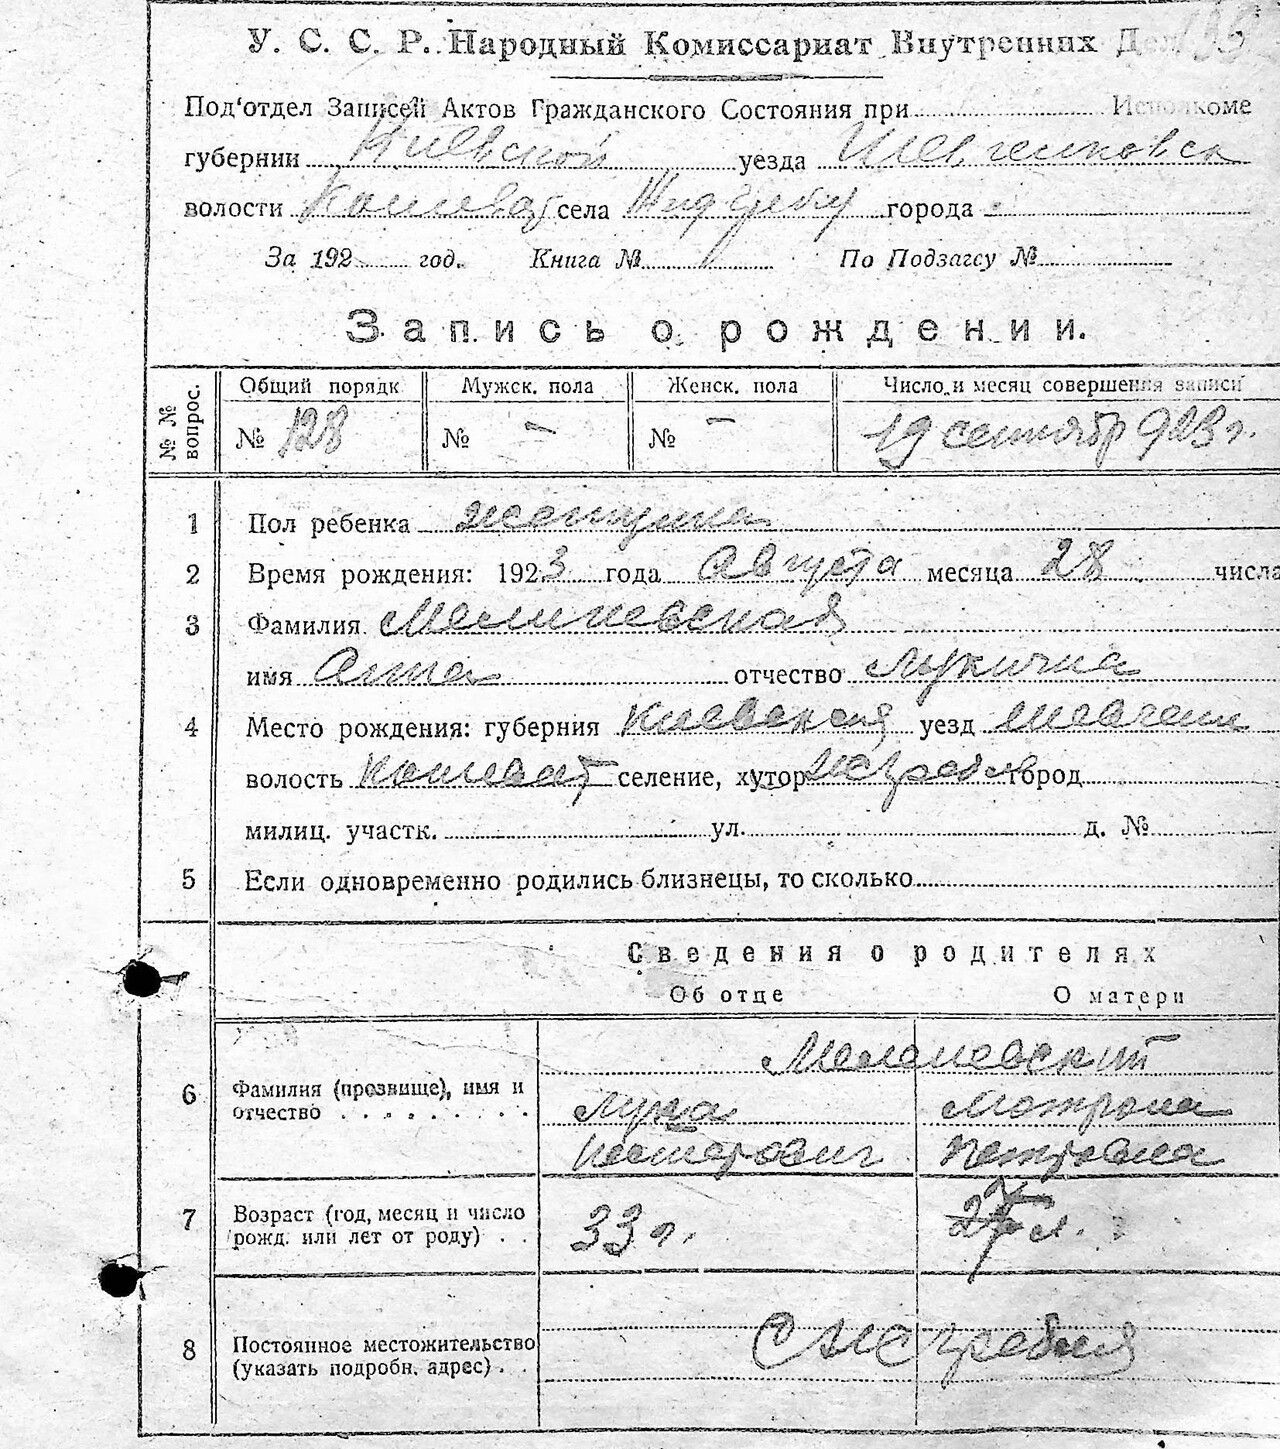 У. С. С. Р. Народный Комиссариат Внутренних Дел
Под‘отдел Записей Актов Гражданского Состояния при Исполкоме
губернии Киевской уезда Шевченковск
волости Кошеват села города
За 192 год. Книга № По Подзагсу №
Запись о рождении.
№ № вопрос. Общий порядк Мужск. пола Женск. пола Число и месяц совершения записи
№ 128 № – № – 19 сентябр 923 г.
1 Пол ребенка женщина
2 Время рождения: 1923 года Августа месяца 28 числа
3 Фамилия Мелиневская
имя Анна отчество Лукична
4 Место рождения: губерния Киевская уезд Шевченк
волость Кошеват селение, хутор город
милиц. участк. ул. д. №
5 Если одновременно родились близнецы, то сколько
Сведения о родителях
Об отце О матери
6 Фамилия (прозвище), имя и
отчество . . . . . . . . .
Лука Мотрона
Петровна
7 Возраст (год, месяц и число
рожд. или лет от роду) . .
33 г. л.
8 Постоянное местожительство
(указать подробн. адрес) . .